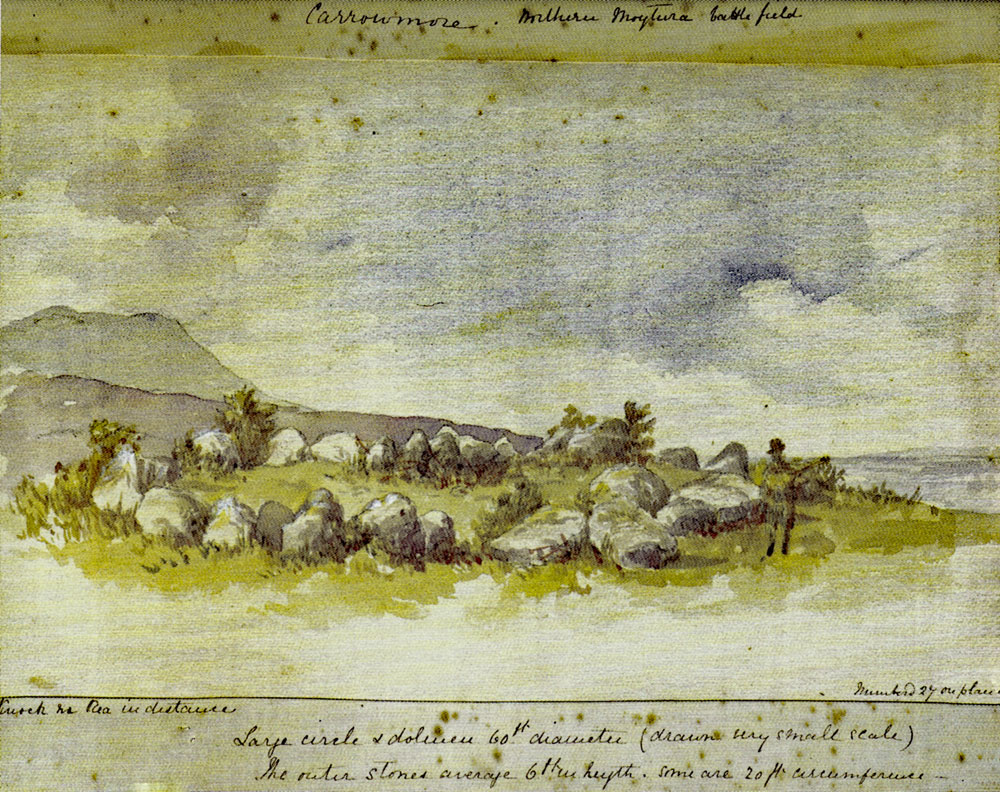 Carrowmore. Northern Moytura battle field
Knock na Rea in distance
Numberd 27 on plan
Large circle & dolmen 60ft diameter (drawn very small scale)
The outer stones average 6ft in heygth. some are 20 ft circumference